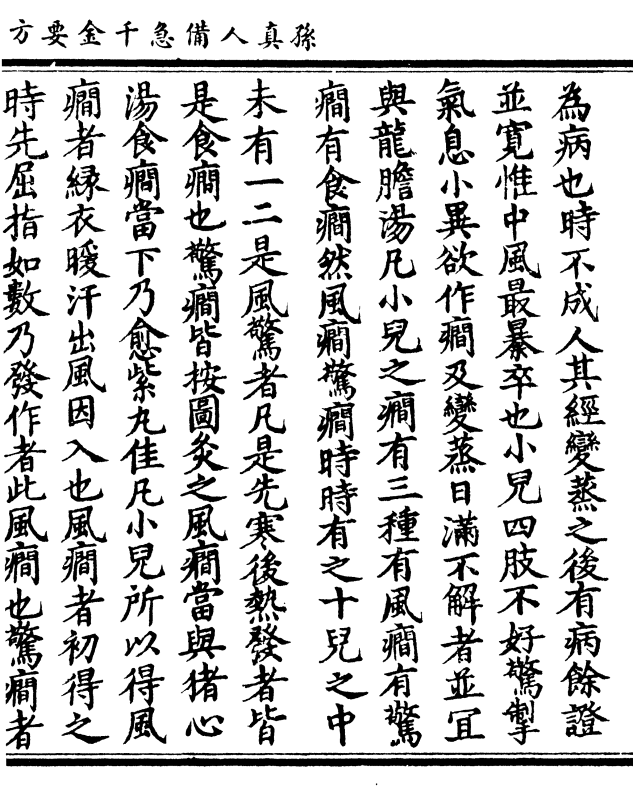 孫真人備急千金要方
為病也時不成人其經變蒸之後有病餘證
並寬惟中風最暴卒也小兒四肢不好驚掣
氣息小異欲作癇及變蒸日滿不解者並冝
與龍膽湯凡小兒之癇有三種有風癇有驚
癇有食癇然風癇驚癇時時有之十兒之中
未有一二是風驚者凡是先寒後熱發者皆
是食癇也驚癇皆按圖灸之風癇當與猪心
湯食癇當下乃愈紫丸佳凡小兒所以得風
癇者緣衣暖汗出風因入也風癇者初得之
時先屈指如數乃發作者此風癇也驚癇者